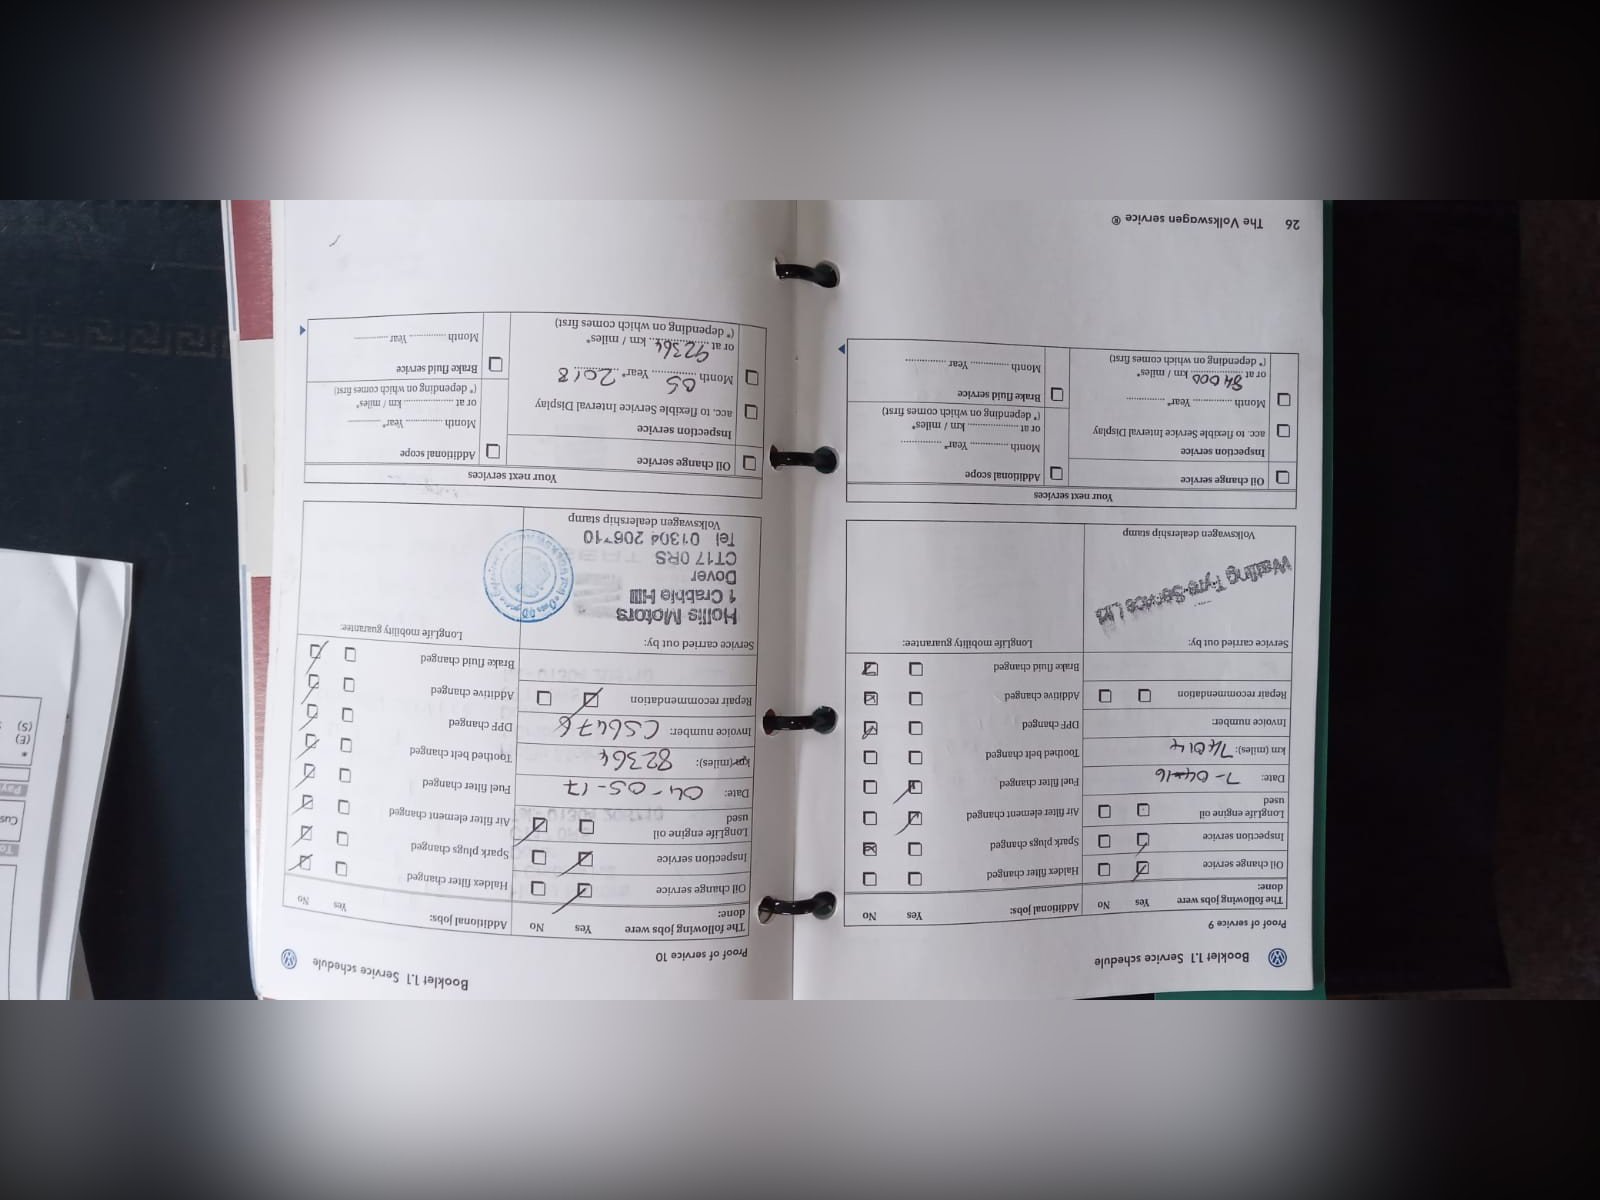 Booklet 1.1 Service schedule
Proof of service 9
The following jobs were done: Yes No Additional jobs: Yes No
Oil change service Haldex filter changed
Inspection service Spark plugs changed
LongLife engine oil used Air filter element changed
Date: 7-04-16 Fuel filter changed
km (miles): 74014 Toothed belt changed
Invoice number: DPF changed
Repair recommendation Additive changed
Brake fluid changed
Service carried out by: LongLife mobility guarantee:
Watling Tyre Service Ltd
Volkswagen dealership stamp
Your next services
Oil change service Additional scope
Inspection service Month ............ Year* ............
acc. to flexible Service Interval Display or at ................ km / miles*
Month ............ Year* ............ (* depending on which comes first)
or at 84000 km / miles* Brake fluid service
(* depending on which comes first) Month ............ Year ............
26 The Volkswagen service ®
Booklet 1.1 Service schedule
Proof of service 10
The following jobs were done: Yes No Additional jobs: Yes No
Oil change service Haldex filter changed
Inspection service Spark plugs changed
LongLife engine oil used Air filter element changed
Date: 04-05-17 Fuel filter changed
km (miles): 82364 Toothed belt changed
Invoice number: CS6476 DPF changed
Repair recommendation Additive changed
Brake fluid changed
Service carried out by: LongLife mobility guarantee:
Hollis Motors
1 Crabble Hill
Dover
CT17 0RS
Tel 01304 206710
Volkswagen dealership stamp
Your next services
Oil change service Additional scope
Inspection service Month ............ Year* ............
acc. to flexible Service Interval Display or at ................ km / miles*
Month 05 Year* 2018 (* depending on which comes first)
or at 92364 km / miles* Brake fluid service
(* depending on which comes first) Month ............ Year ............